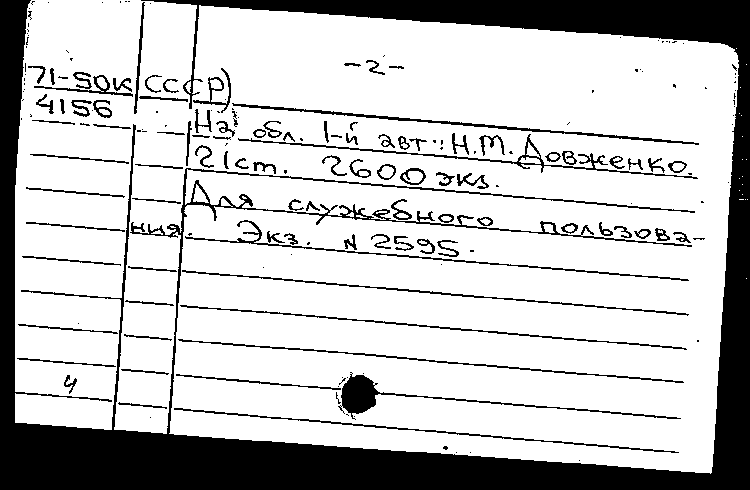 -2-
71-50К СССР)
4156
На обл. 1-й авт.: Н.М. Довженко.
21 ст. 2600 экз.
Для служебного пользова-
ния. Экз. N 2595.
4